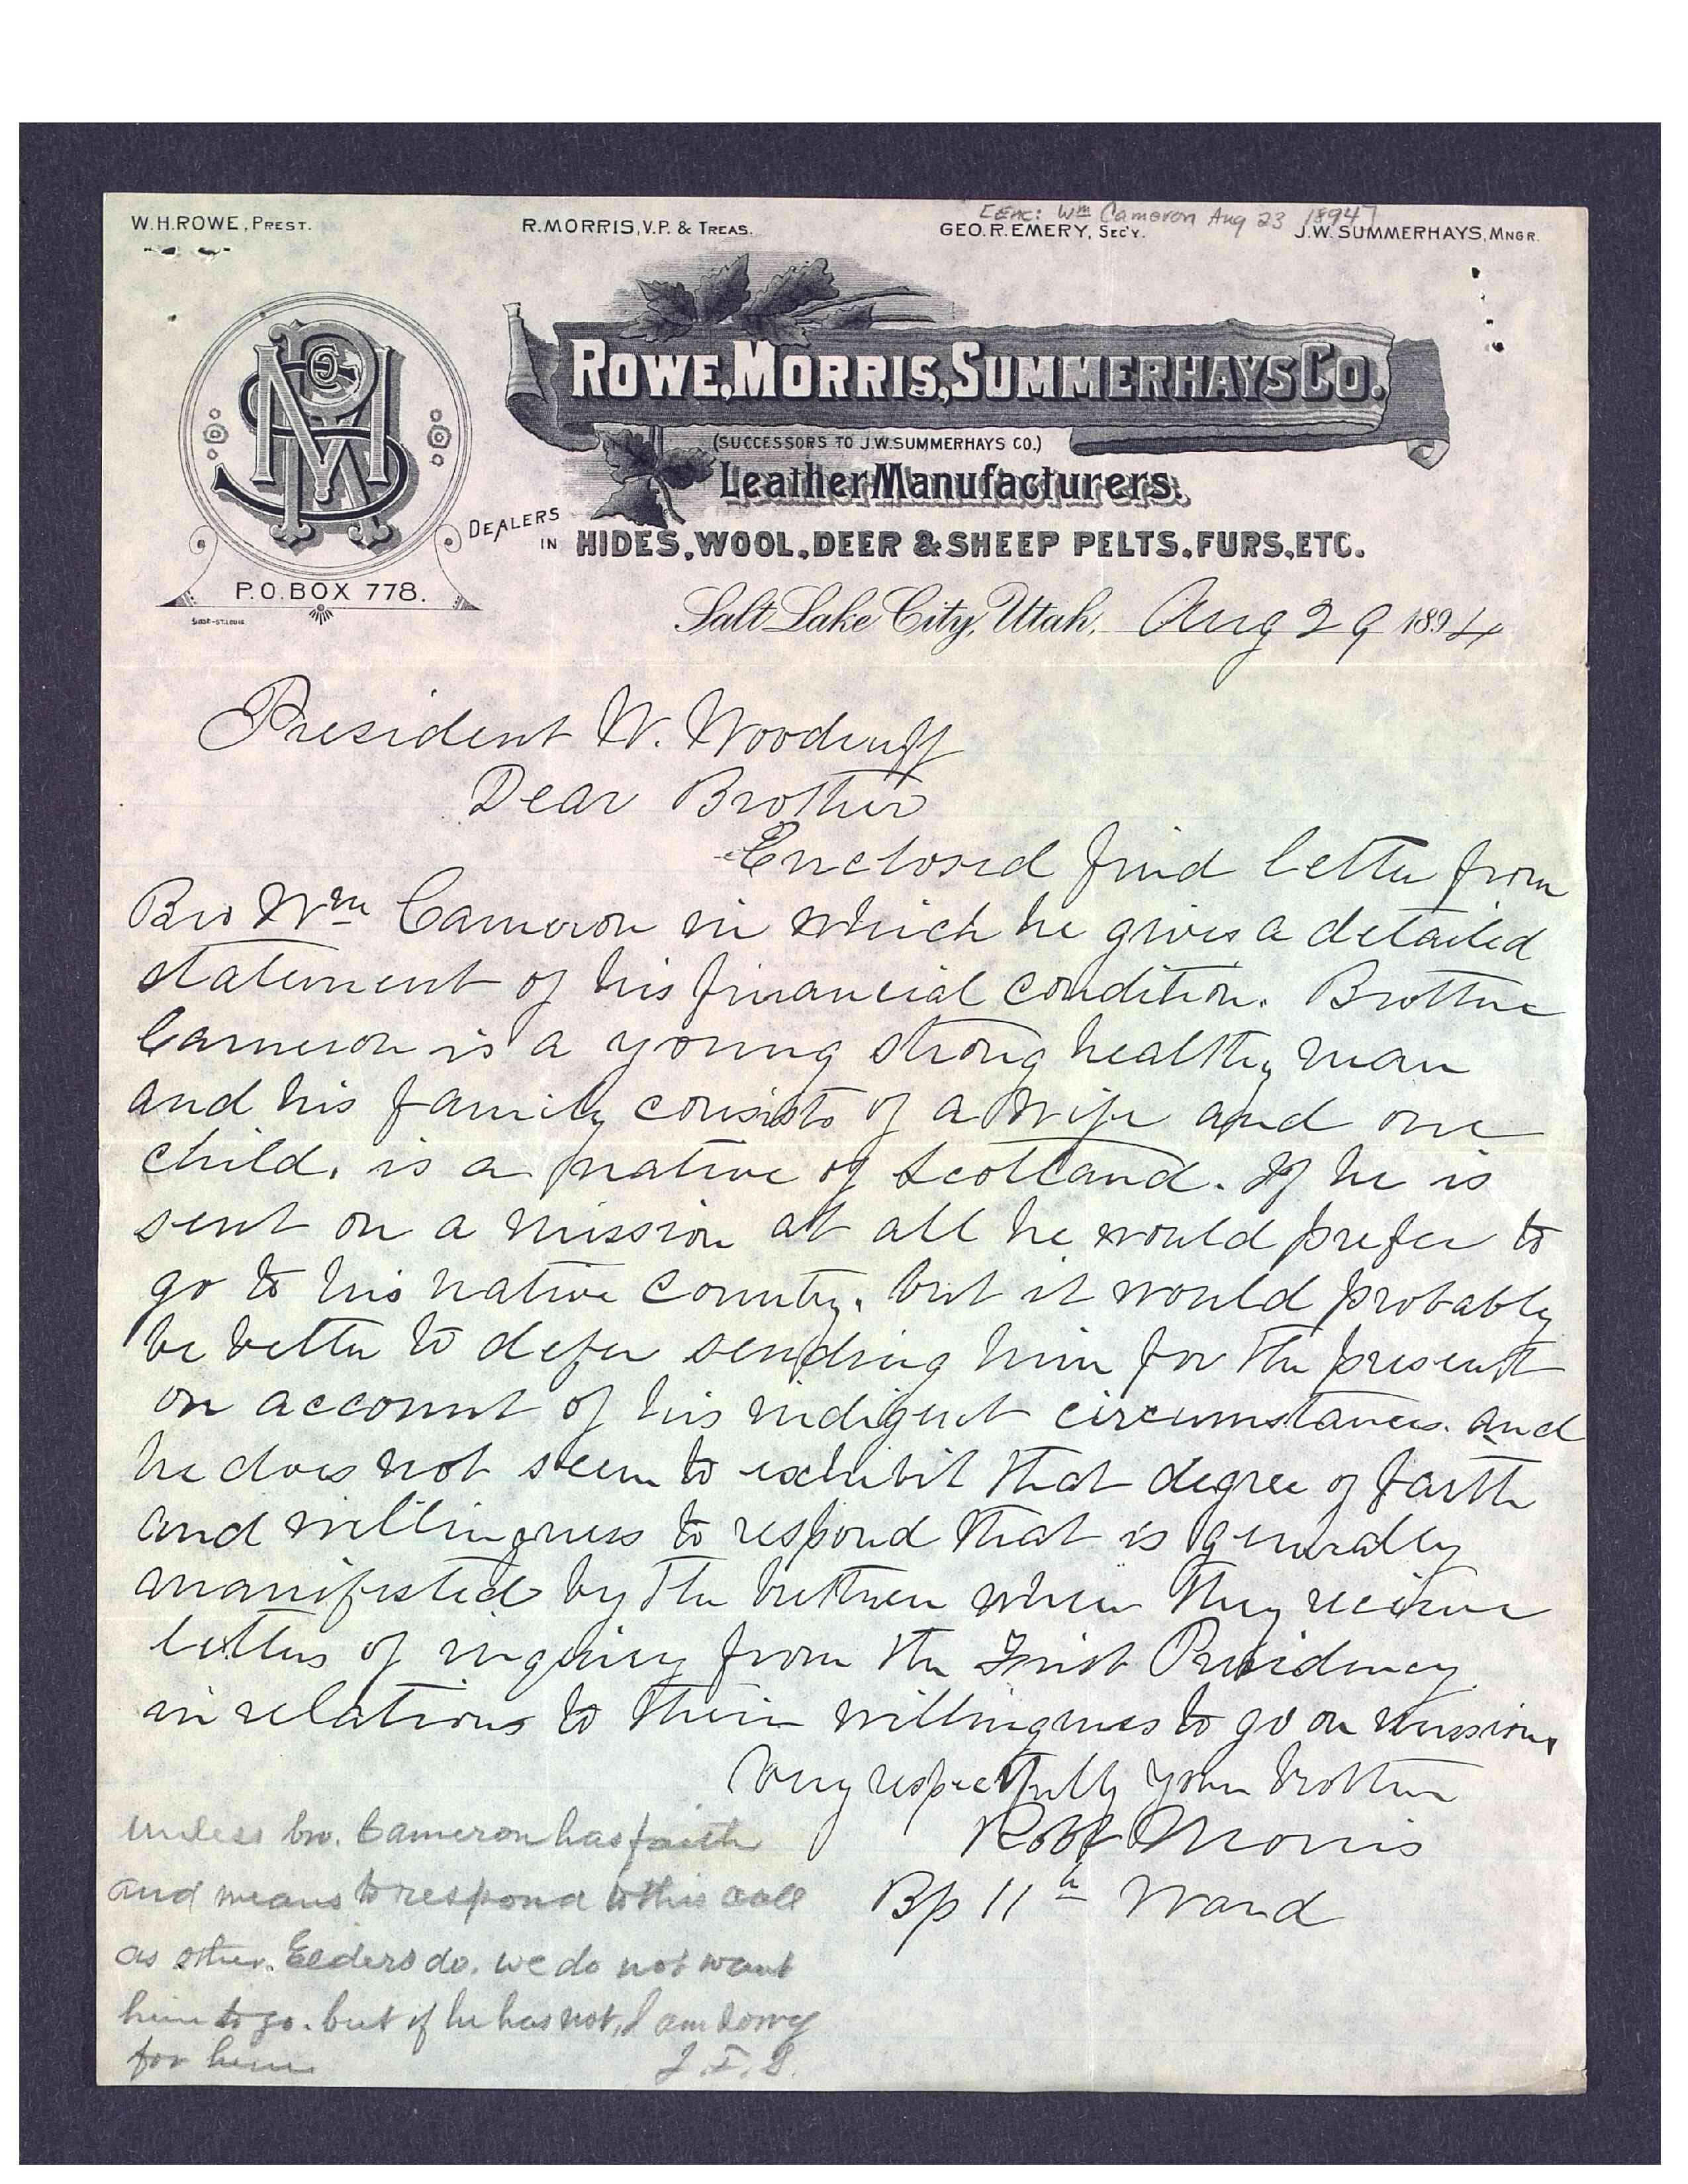 [Enc: Wm Cameron Aug 23 1894]
W.H.ROWE, PREST. R.MORRIS, V.P. & TREAS. GEO.R.EMERY, SEC'Y. J.W.SUMMERHAYS, MNGR.
ROWE, MORRIS, SUMMERHAYS CO.
(SUCCESSORS TO J.W.SUMMERHAYS CO.)
Leather Manufacturers.
DEALERS IN HIDES, WOOL, DEER & SHEEP PELTS, FURS, ETC.
P.O. BOX 778.
Salt Lake City, Utah, Aug 29 1894
President W. Woodruff
Dear Brother
Enclosed find letter from
Bro Wm Cameron in which he gives a detailed
statement of his financial condition. Brother
Cameron is a young strong healthy man
and his family consists of a wife and one
child. is a native of Scotland. If he is
sent on a mission at all he would prefer to
go to his native country. but it would probably
be better to defer sending him for the present
on account of his indigent circumstances. and
he does not seem to exhibit that degree of faith
and willingness to respond that is generally
manifested by the brethren when they receive
letters of inquiry from the First Presidency
in relations to their willingness to go on missions
Very respectfully your brother
Robt Morris
Bp 11th Ward
unless bro. Cameron has faith
and means to respond to this call
as other Elders do. we do not want
him to go. but if he has not, I am sorry
for him J. F. S.